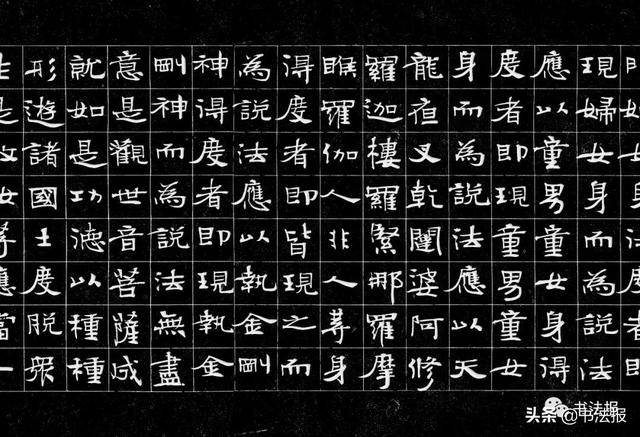 現婦女身而為說法
應以童男童女身得
度者即現童男童女
身而為說法應以天
龍夜叉乾闥婆阿修
羅迦樓羅緊那羅摩
睺羅伽人非人等身
得度者即皆現之而
為說法應以執金剛
神得度者即現執金
剛神而為說法無盡
意是觀世音菩薩成
就如是功德以種種
形遊諸國土度脫眾
生是故汝等應當一
书法报
头条 @书法报